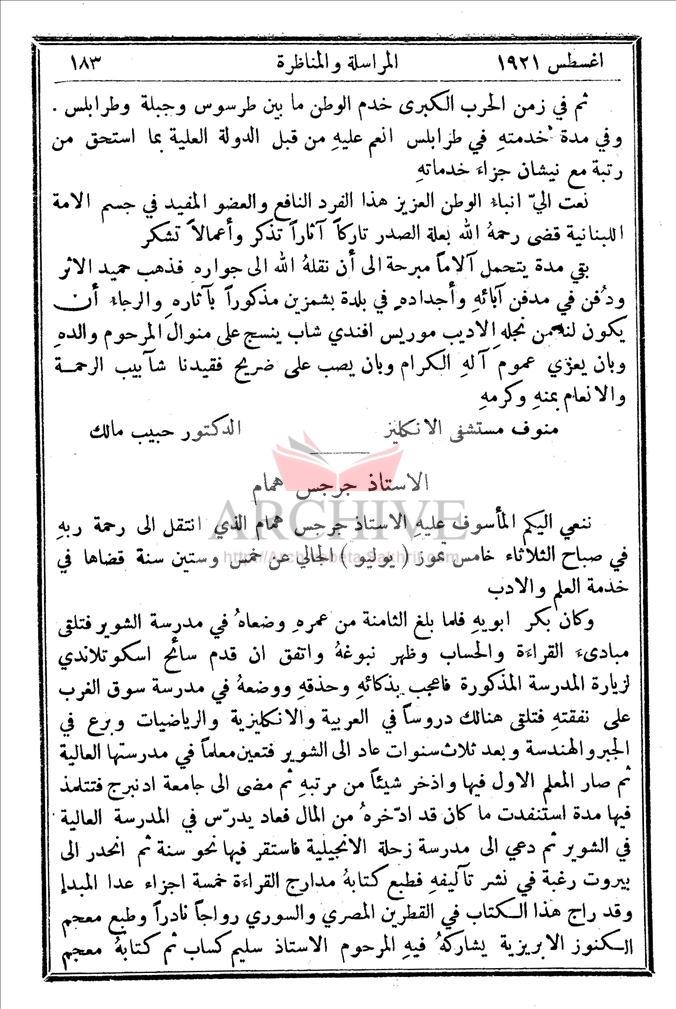 اغسطس ١٩٢١ المراسلة والمناظرة ١٨٣
ثم في زمن الحرب الكبرى خدم الوطن ما بين طرسوس وجبلة وطرابلس .
وفي مدة خدمتهِ في طرابلس انعم عليهِ من قبل الدولة العلية بما استحق من
رتبة مع نيشان جزاء خدماتهِ
نعت اليّ انباءُ الوطن العزيز هذا الفرد النافع والعضو المفيد في جسم الامة
اللبنانية قضى رحمهُ الله بعلة الصدر تاركاً آثاراً تذكر وأعمالاً تشكر
بقي مدة يتحمل آلاماً مبرحة الى أن نقلهُ الله الى جواره فذهب حميد الاثر
ودُفن في مدفن آبائهِ وأجدادهِ في بلدة بشمزين مذكوراً بآثارهِ والرجاء أن
يكون لنا من نجله الاديب موريس افندي شاب ينسج على منوال المرحوم والدهِ
وبان يعزّي عموم آلهِ الكرام وبان يصب على ضريح فقيدنا شآبيب الرحمة
والانعام بمنهِ وكرمهِ
منوف مستشفى الانكليز الدكتور حبيب مالك
الاستاذ جرجس همام
ARCHIVE
ننعي اليكم المأسوف عليهِ الاستاذ جرجس همام الذي انتقل الى رحمة ربهِ
في صباح الثلاثاء خامس تموز ( يوليو ) الجالي عن خمس وستين سنة قضاها في
خدمة العلم والادب
وكان بكر ابويهِ فلما بلغ الثامنة من عمرهِ وضعاهُ في مدرسة الشوير فتلقى
مبادىء القراءة والحساب وظهر نبوغهُ واتفق ان قدم سائح اسكوتلاندي
لزيارة المدرسة المذكورة فاعجب بذكائهِ وحذقهِ ووضعهُ في مدرسة سوق الغرب
على نفقتهِ فتلقى هنالك دروساً في العربية والانكليزية والرياضيات وبرع في
الجبر والهندسة وبعد ثلاث سنوات عاد الى الشوير فتعين معلماً في مدرستها العالية
ثم صار المعلم الاول فيها واذخر شيئاً من مرتبهِ ثم مضى الى جامعة ادنبرج فتتلمذ
فيها مدة استنفدت ما كان قد ادّخرهُ من المال فعاد يدرّس في المدرسة العالية
في الشوير ثم دعي الى مدرسة زحلة الانجيلية فاستقر فيها نحو سنة ثم انحدر الى
بيروت رغبة في نشر تآليفهِ فطبع كتابهُ مدارج القراءة خمسة اجزاء عدا المبدإ
وقد راج هذا الكتاب في القطرين المصري والسوري رواجاً نادراً وطبع معجم
الكنوز الابريزية يشاركهُ فيهِ المرحوم الاستاذ سليم كساب ثم كتابهُ معجم